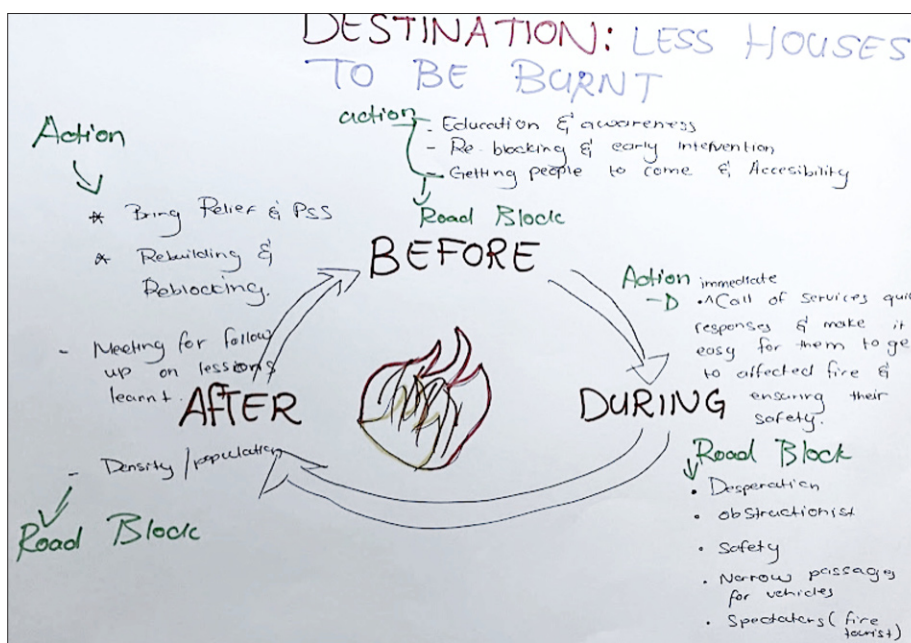 DESTINATION: LESS HOUSES
TO BE BURNT
action
- Education & awareness
- Re-blocking & early intervention
- Getting people to come & Accesibility
Road Block
BEFORE
Action
* Bring Relief & PSS
* Rebuilding &
Reblocking.
- Meeting for follow
up on lessions
learnt.
AFTER
- Density/population
Road Block
Action immediate
• ^Call of services
responses & make it
easy for them to
to affected fire &
ensuring their
safety.
DURING
Road Block
• Desperation
• obstructionist
• Safety
• Narrow passages
for vehicles
• Spectaters (fire
tourist)